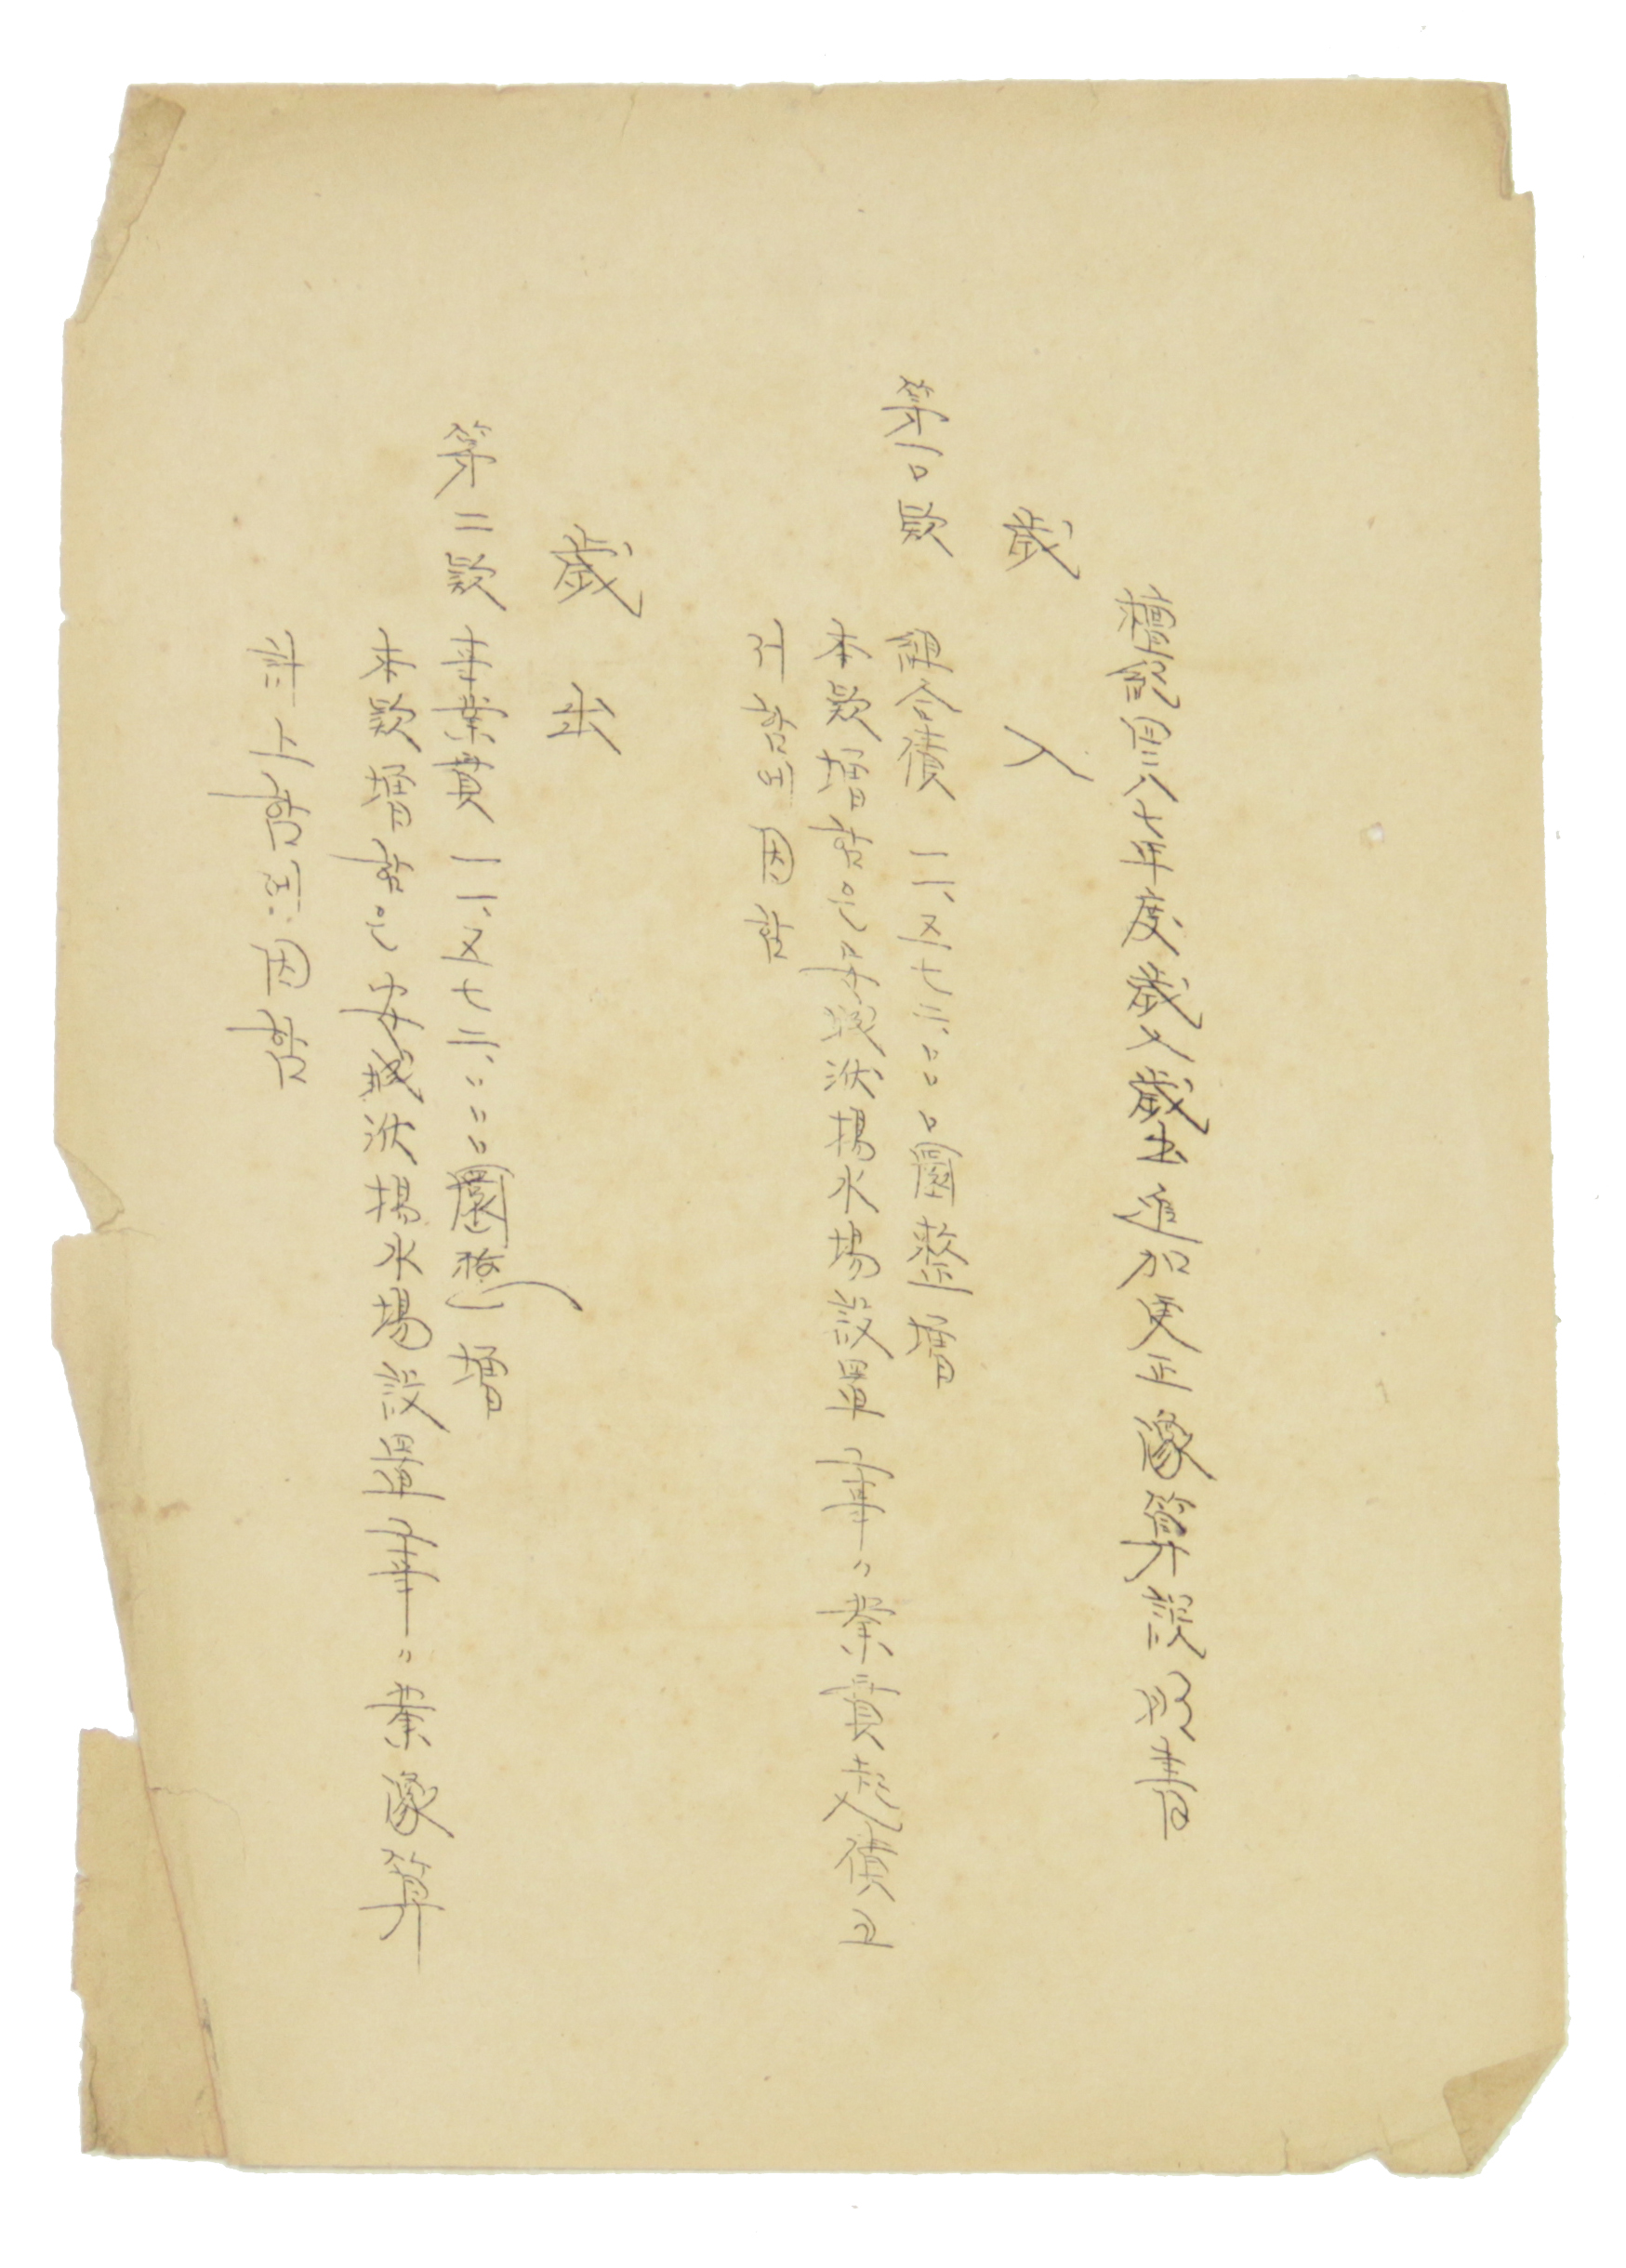 檀紀四二八七年度歲入歲出追加更正豫算說明書
歲入
第一〇款 組合債 一一、五七三、〇〇〇圜整 增
本款增함은 揚水場設置 事業費起債로
計上함에 因함
歲出
第二款 事業費 一一、五七三、〇〇〇(圜整) 增
本款增함은 揚水場設置 事業豫算
計上함에 因함